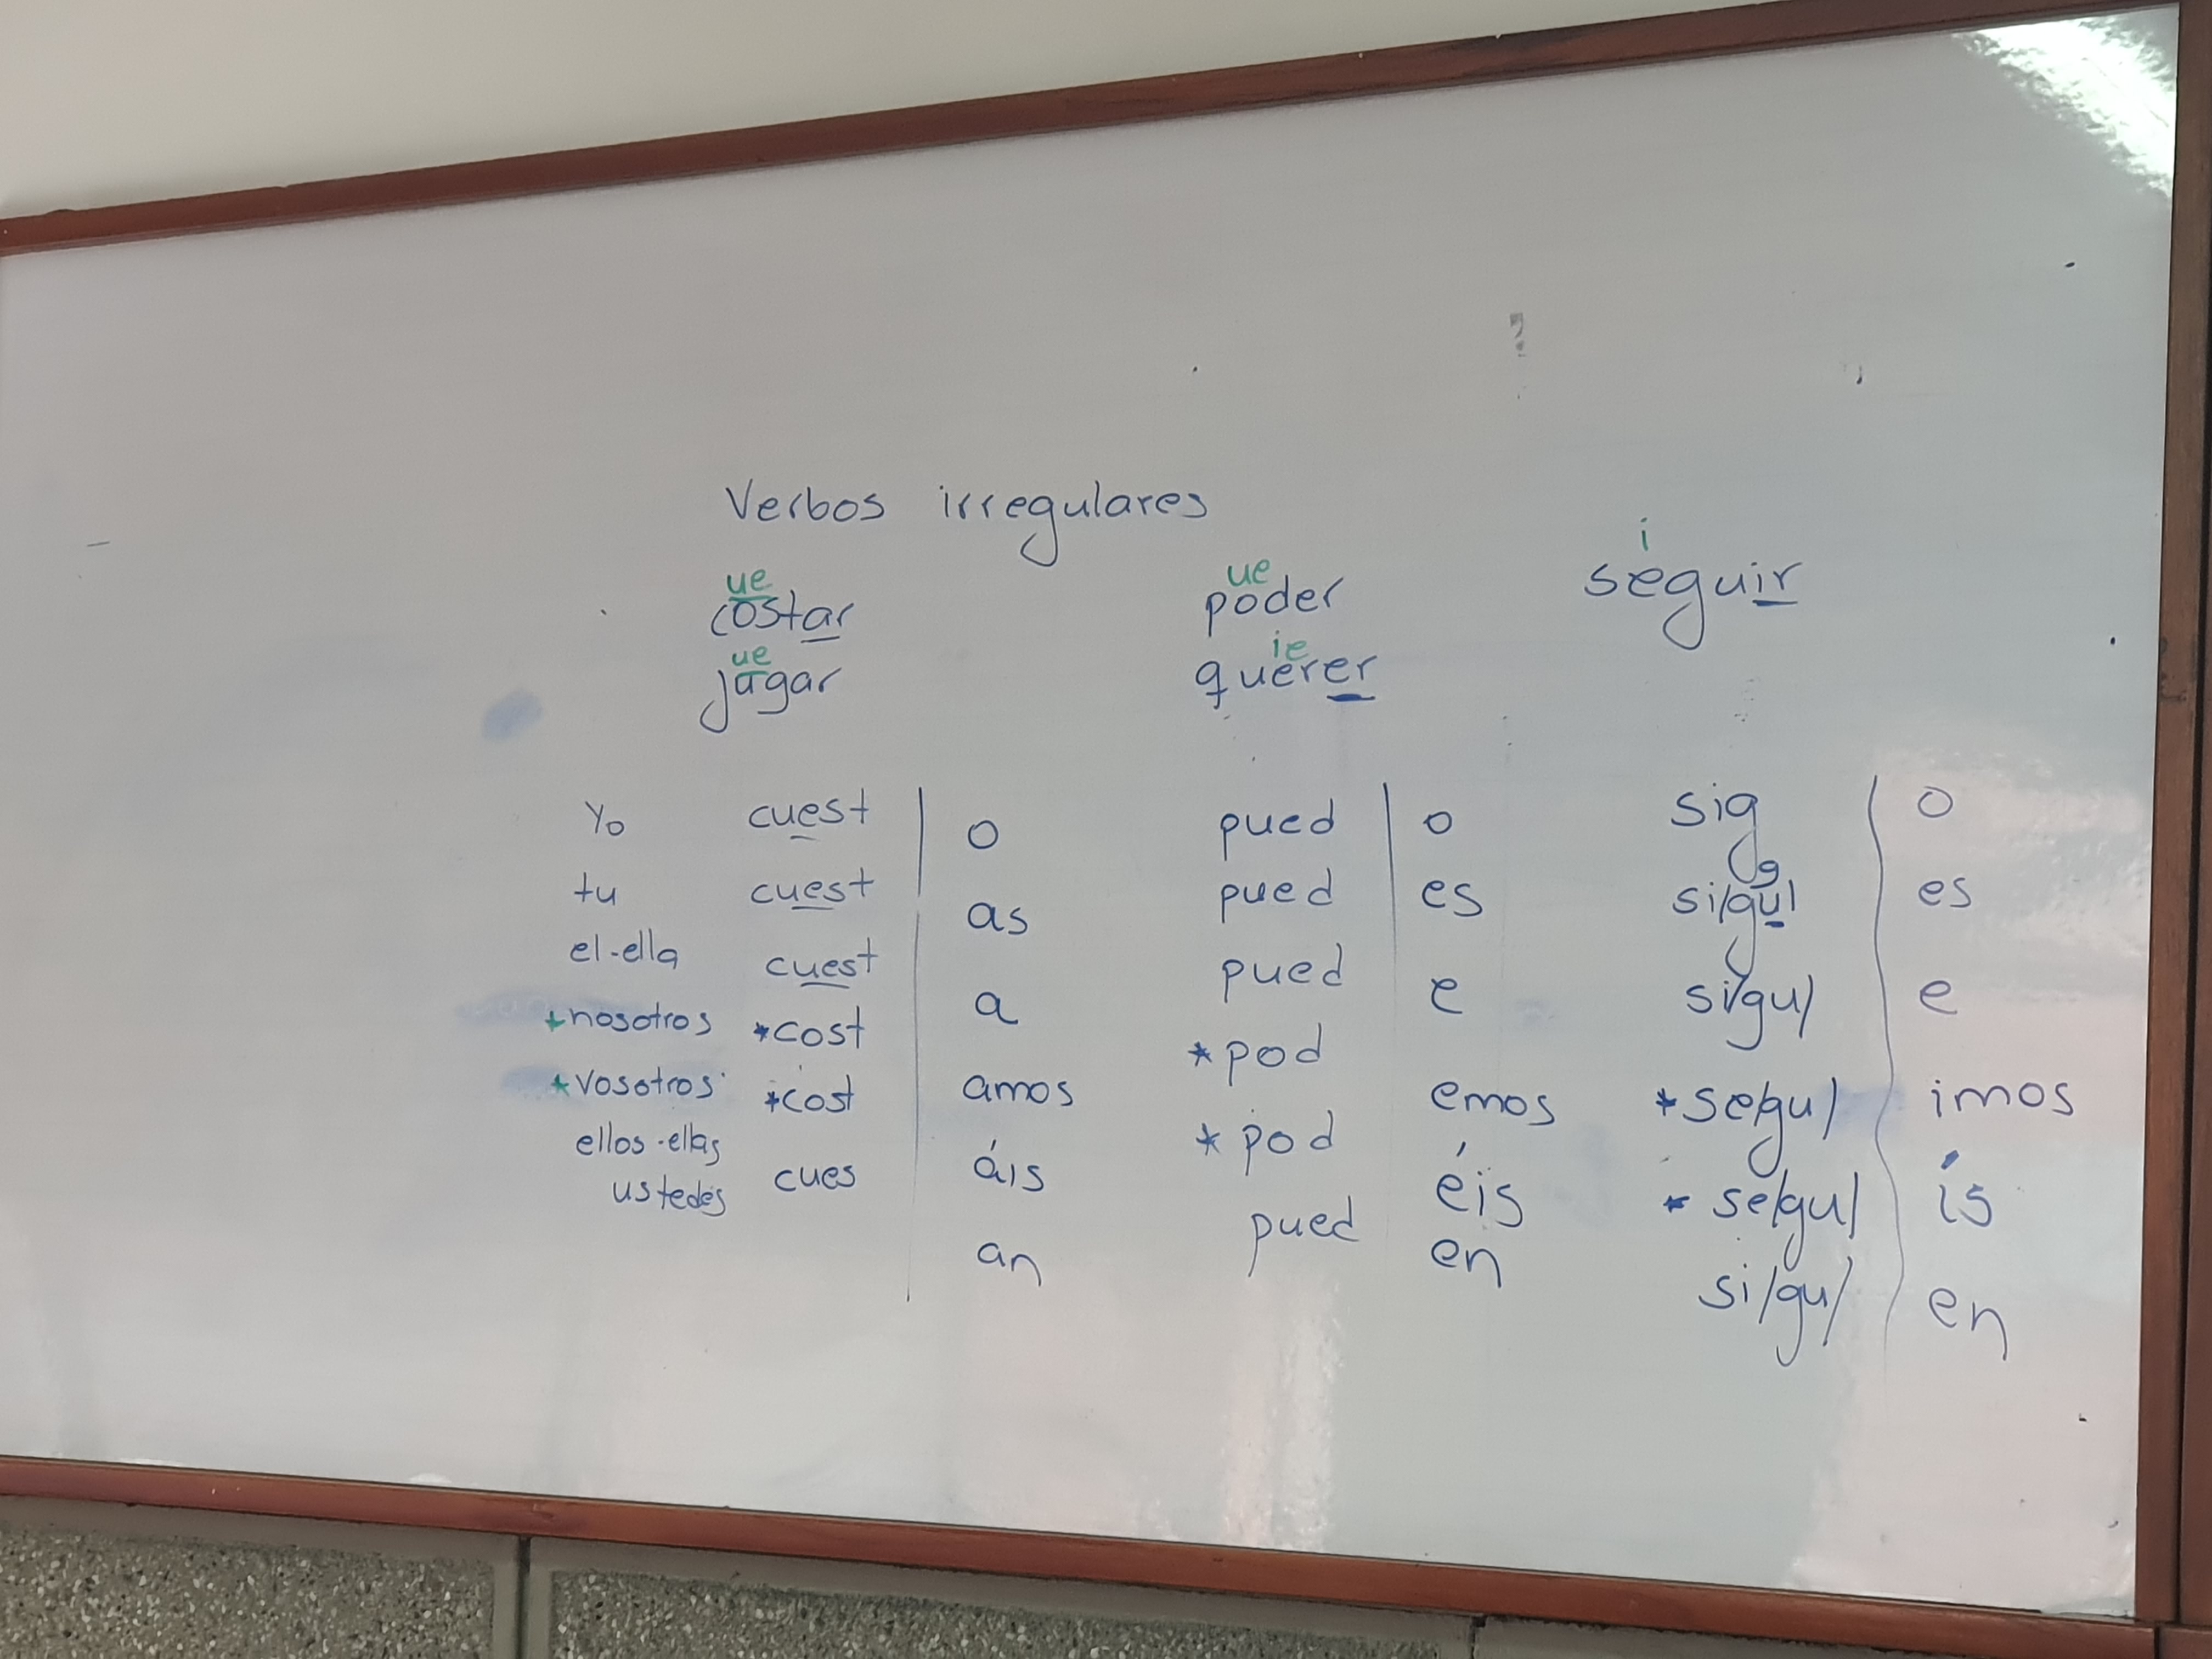 Verbos irregulares
ue ue i
costar poder seguir
ue ie
jugar querer
Yo cuest | o pued | o sig | o
tu cuest | as pued | es si/gu/ | es
el-ella cuest | a pued | e si/gu/ | e
*nosotros *cost | amos *pod | emos *se/gu/ | imos
*vosotros *cost | áis *pod | éis *se/gu/ | ís
ellos-ellas
ustedes cues | an pued | en si/gu/ | en